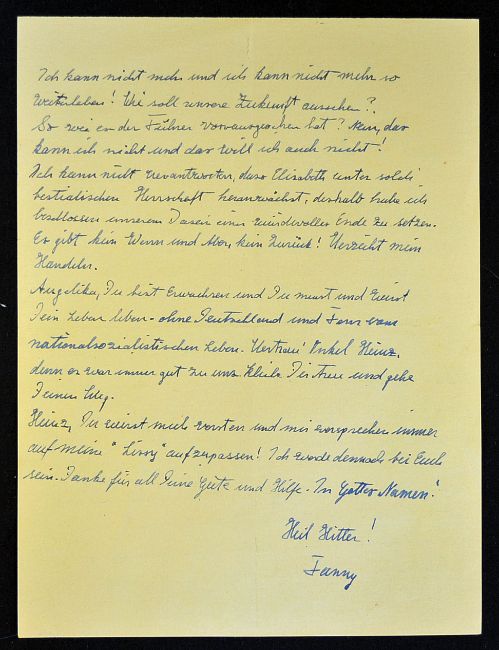 Ich kann nicht mehr und ich kann nicht mehr so
weiterleben! Wie soll unsere Zukunft aussehen?
So wie es der Führer vorausgesehen hat? Nein, das
kann ich nicht und das will ich auch nicht!
Ich kann nicht verantworten, dass Elisabeth unter solch
bestialischen Herrschaft heranwächst, deshalb habe ich
beschlossen unserem Dasein eine würdevoller Ende zu setzen.
Es gibt kein Wenn und Aber, kein Zurück! Verzeiht mein
Handeln.
Angelika, Du bist Erwachsen und Du musst und wirst
Dein Leben leben - ohne Deutschland und Fern vom
nationalsozialistischen Leben. Vertrau Onkel Heinz,
denn er war immer gut zu uns. Bleib Dir treu und gehe
Deinen Weg.
Heinz, Du wirst mich verstehen und mir versprechen immer
auf meine "Lissy" aufzupassen! Ich werde dennoch bei Euch
sein. Danke für all Deine Güte und Hilfe. In Gottes Namen!
Heil Hitler!
Fanny